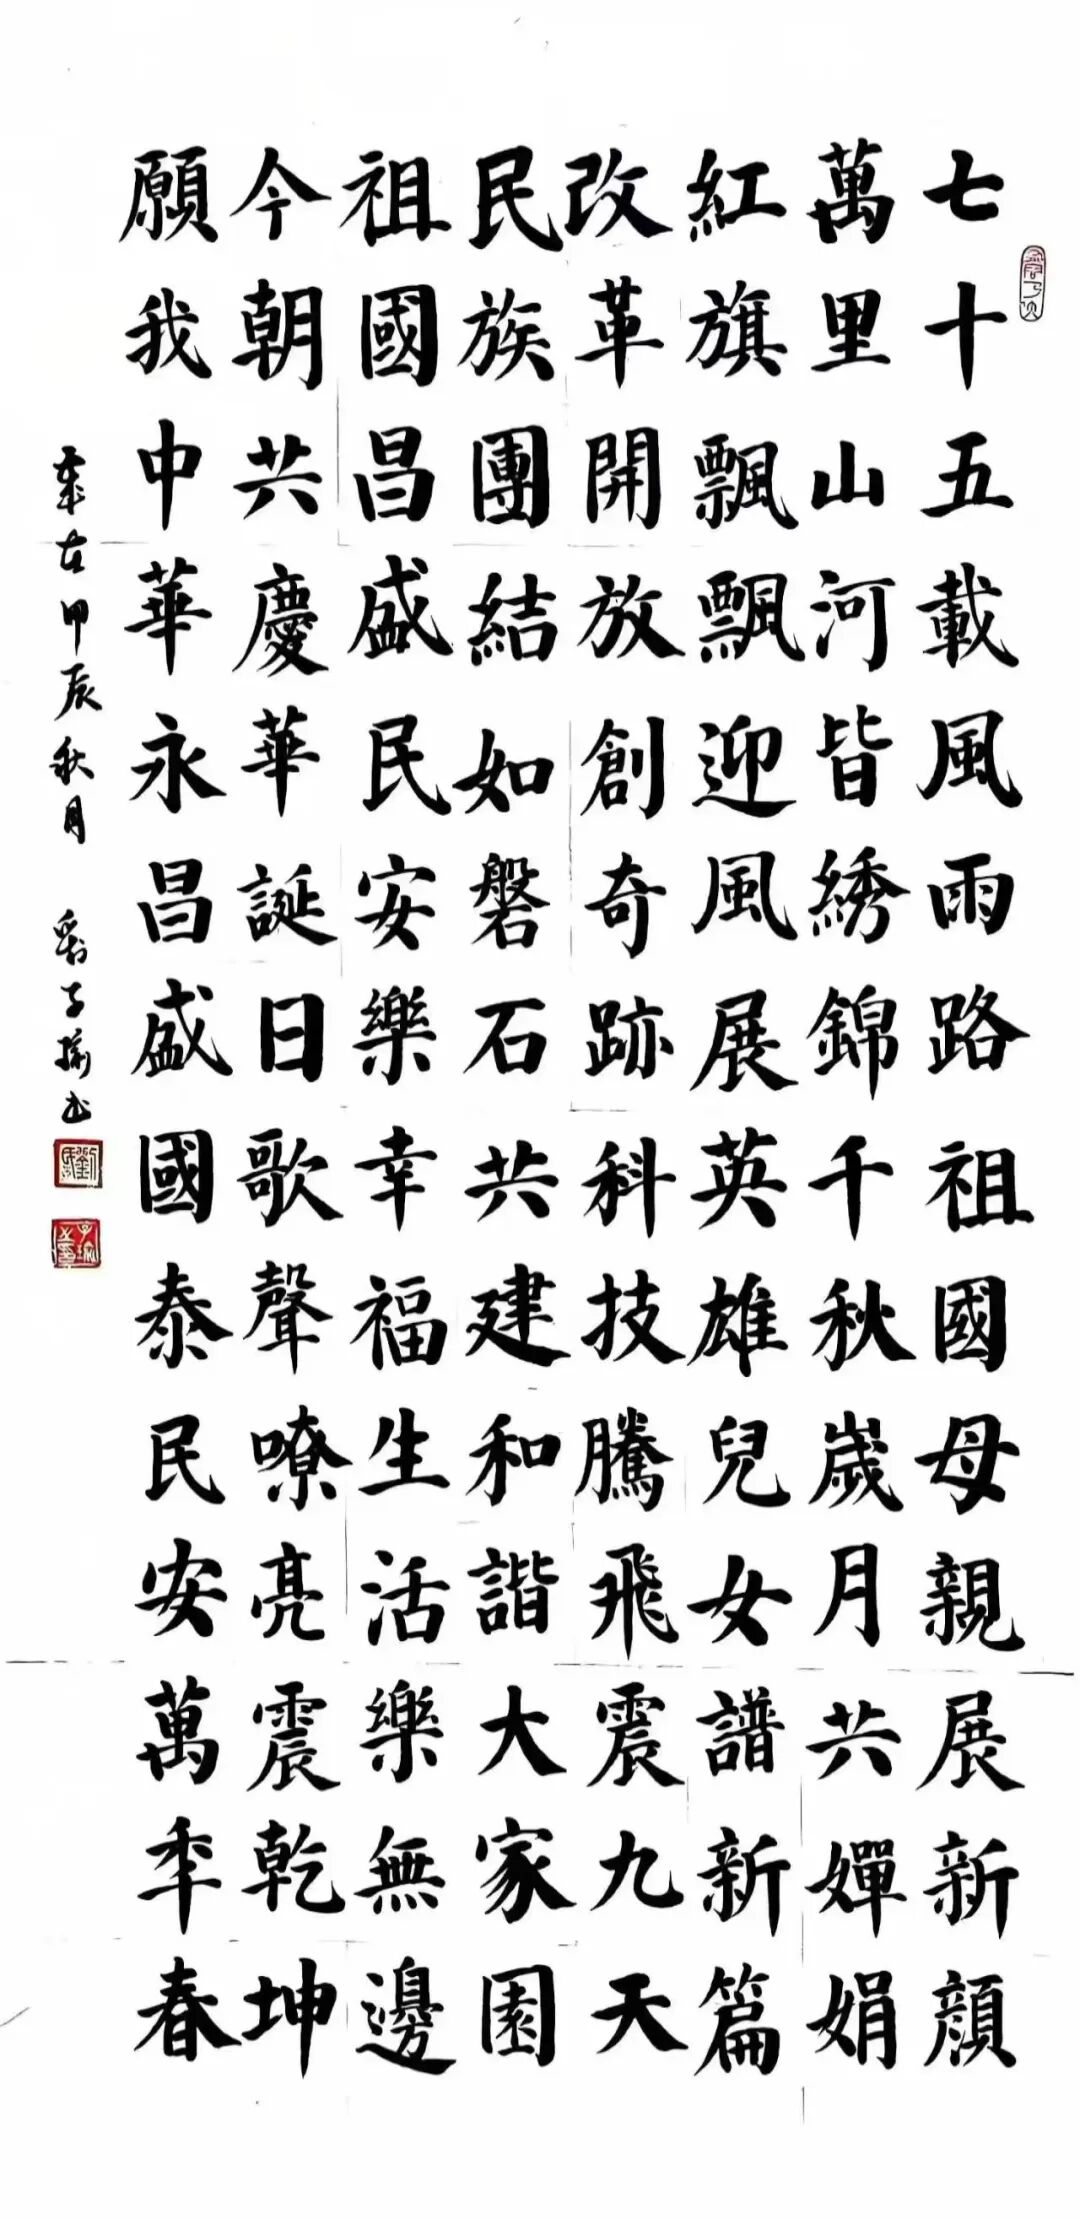 七十五載風雨路祖國母親展新顔
萬里山河皆綉錦千秋歲月共嬋娟
紅旗飄飄迎風展英雄兒女譜新篇
改革開放創奇跡科技騰飛震九天
民族團結如磐石共建和諧大家園
祖國昌盛民安樂幸福生活樂無邊
今朝共慶華誕日歌聲嘹亮震乾坤
願我中華永昌盛國泰民安萬秊春
歲在甲辰秋月 劉子瑜書